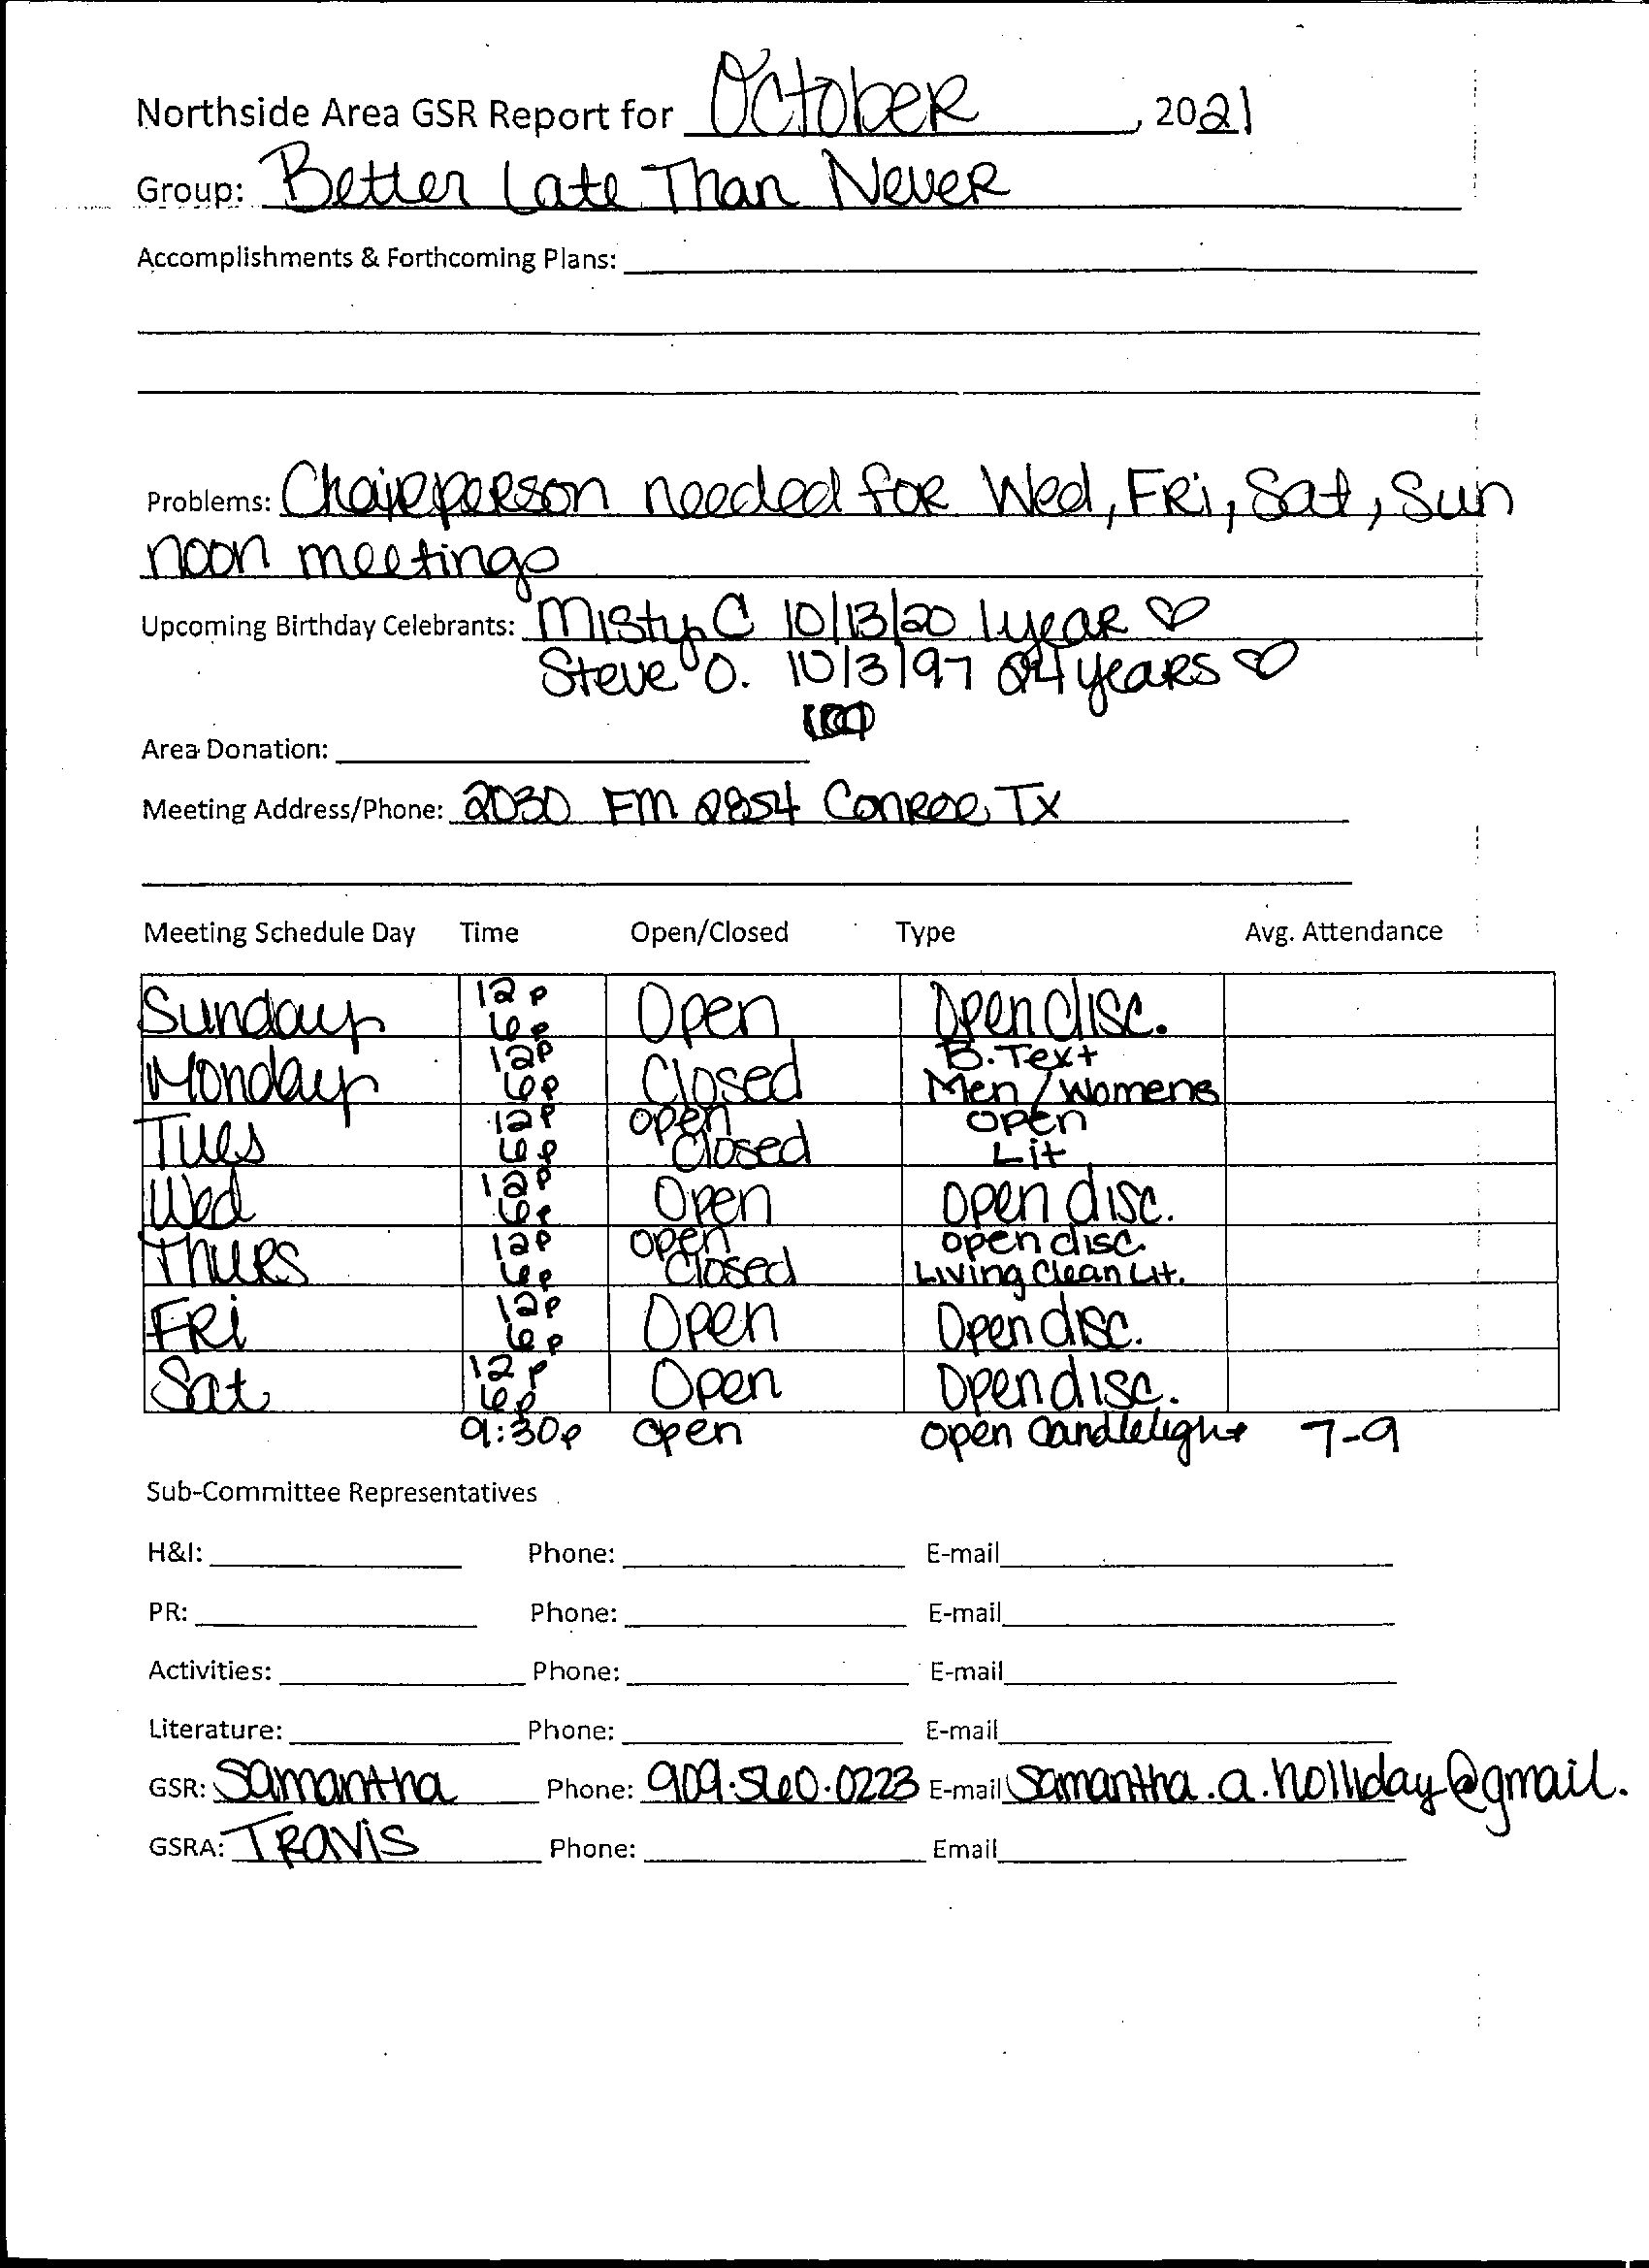 Northside Area GSR Report for October, 2021
Group: Better Late Than Never
Accomplishments & Forthcoming Plans:
Problems: Chairperson needed for Wed, FRi, Sat, Sun
noon meetings
Upcoming Birthday Celebrants: Misty C 10/13/20 1 year ♡
Steve O. 10/3/97 24 years ♡
Area Donation:
Meeting Address/Phone: 2030 FM 2854 Conroe, TX
Meeting Schedule Day Time Open/Closed Type Avg. Attendance
Sunday 12p 6p Open Open disc.
Monday 12p 6p Closed B. Text Men / Womens
Tues 12p 6p open Closed open Lit
Wed 12p 6p Open open disc.
Thurs 12p 6p open Closed open disc. Living Clean Lit.
FRi 12p 6p Open Open disc.
Sat 12p 6p Open Open disc.
9:30p open open candlelight 7-9
Sub-Committee Representatives
H&I: Phone: E-mail
PR: Phone: E-mail
Activities: Phone: E-mail
Literature: Phone: E-mail
GSR: Samantha Phone: 909.560.0223 E-mail Samantha.a.holliday@gmail.
GSRA: TRavis Phone: Email